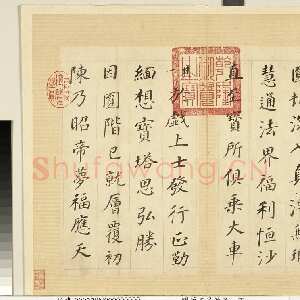 圓頓深入真淨無瑕
慧通法界福利恒沙
直至寶所俱乘大車
於戲上士發行正勤
緬想寶塔思弘勝
因圓階已就層覆初
陳乃昭帝夢福應天
Shufawang.CN